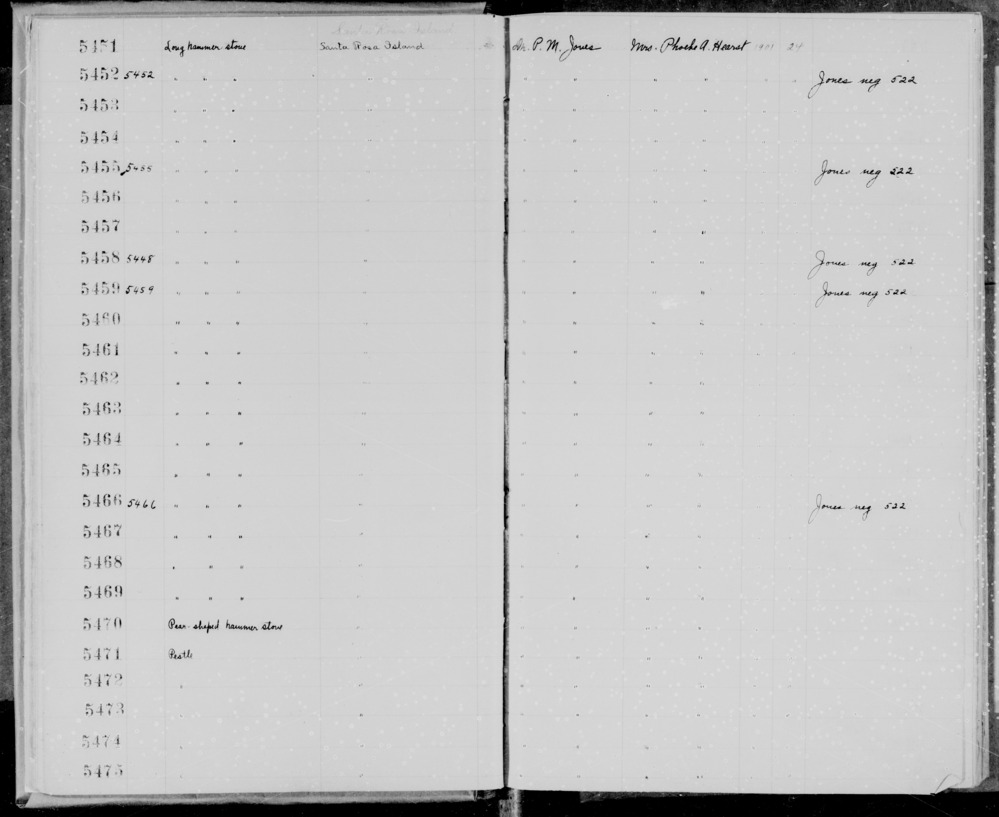 Santa Rosa Island
5451 Long hammer stone Santa Rosa Island Dr. P. M. Jones Mrs. Phoebe A. Hearst 1901 24
5452 5452 " " " " " " " " " " Jones neg 522
5453 " " " " " " " " " "
5454 " " " " " " " " " "
5455 5455 " " " " " " " " " " Jones neg 522
5456 " " " " " " " " " "
5457 " " " " " " " " " "
5458 5448 " " " " " " " " " " Jones neg 522
5459 5459 " " " " " " " " " " Jones neg 522
5460 " " " " " " " " " "
5461 " " " " " " " " " "
5462 " " " " " " " " " "
5463 " " " " " " " " " "
5464 " " " " " " " " " "
5465 " " " " " " " " " "
5466 5466 " " " " " " " " " " Jones neg 522
5467 " " " " " " " " " "
5468 " " " " " " " " " "
5469 " " " " " " " " " "
5470 Pear-shaped hammer stone " " " " " " "
5471 Pestle " " " " " " "
5472 " " " " " " " "
5473 " " " " " " " "
5474 " " " " " " " "
5475 " " " " " " " "